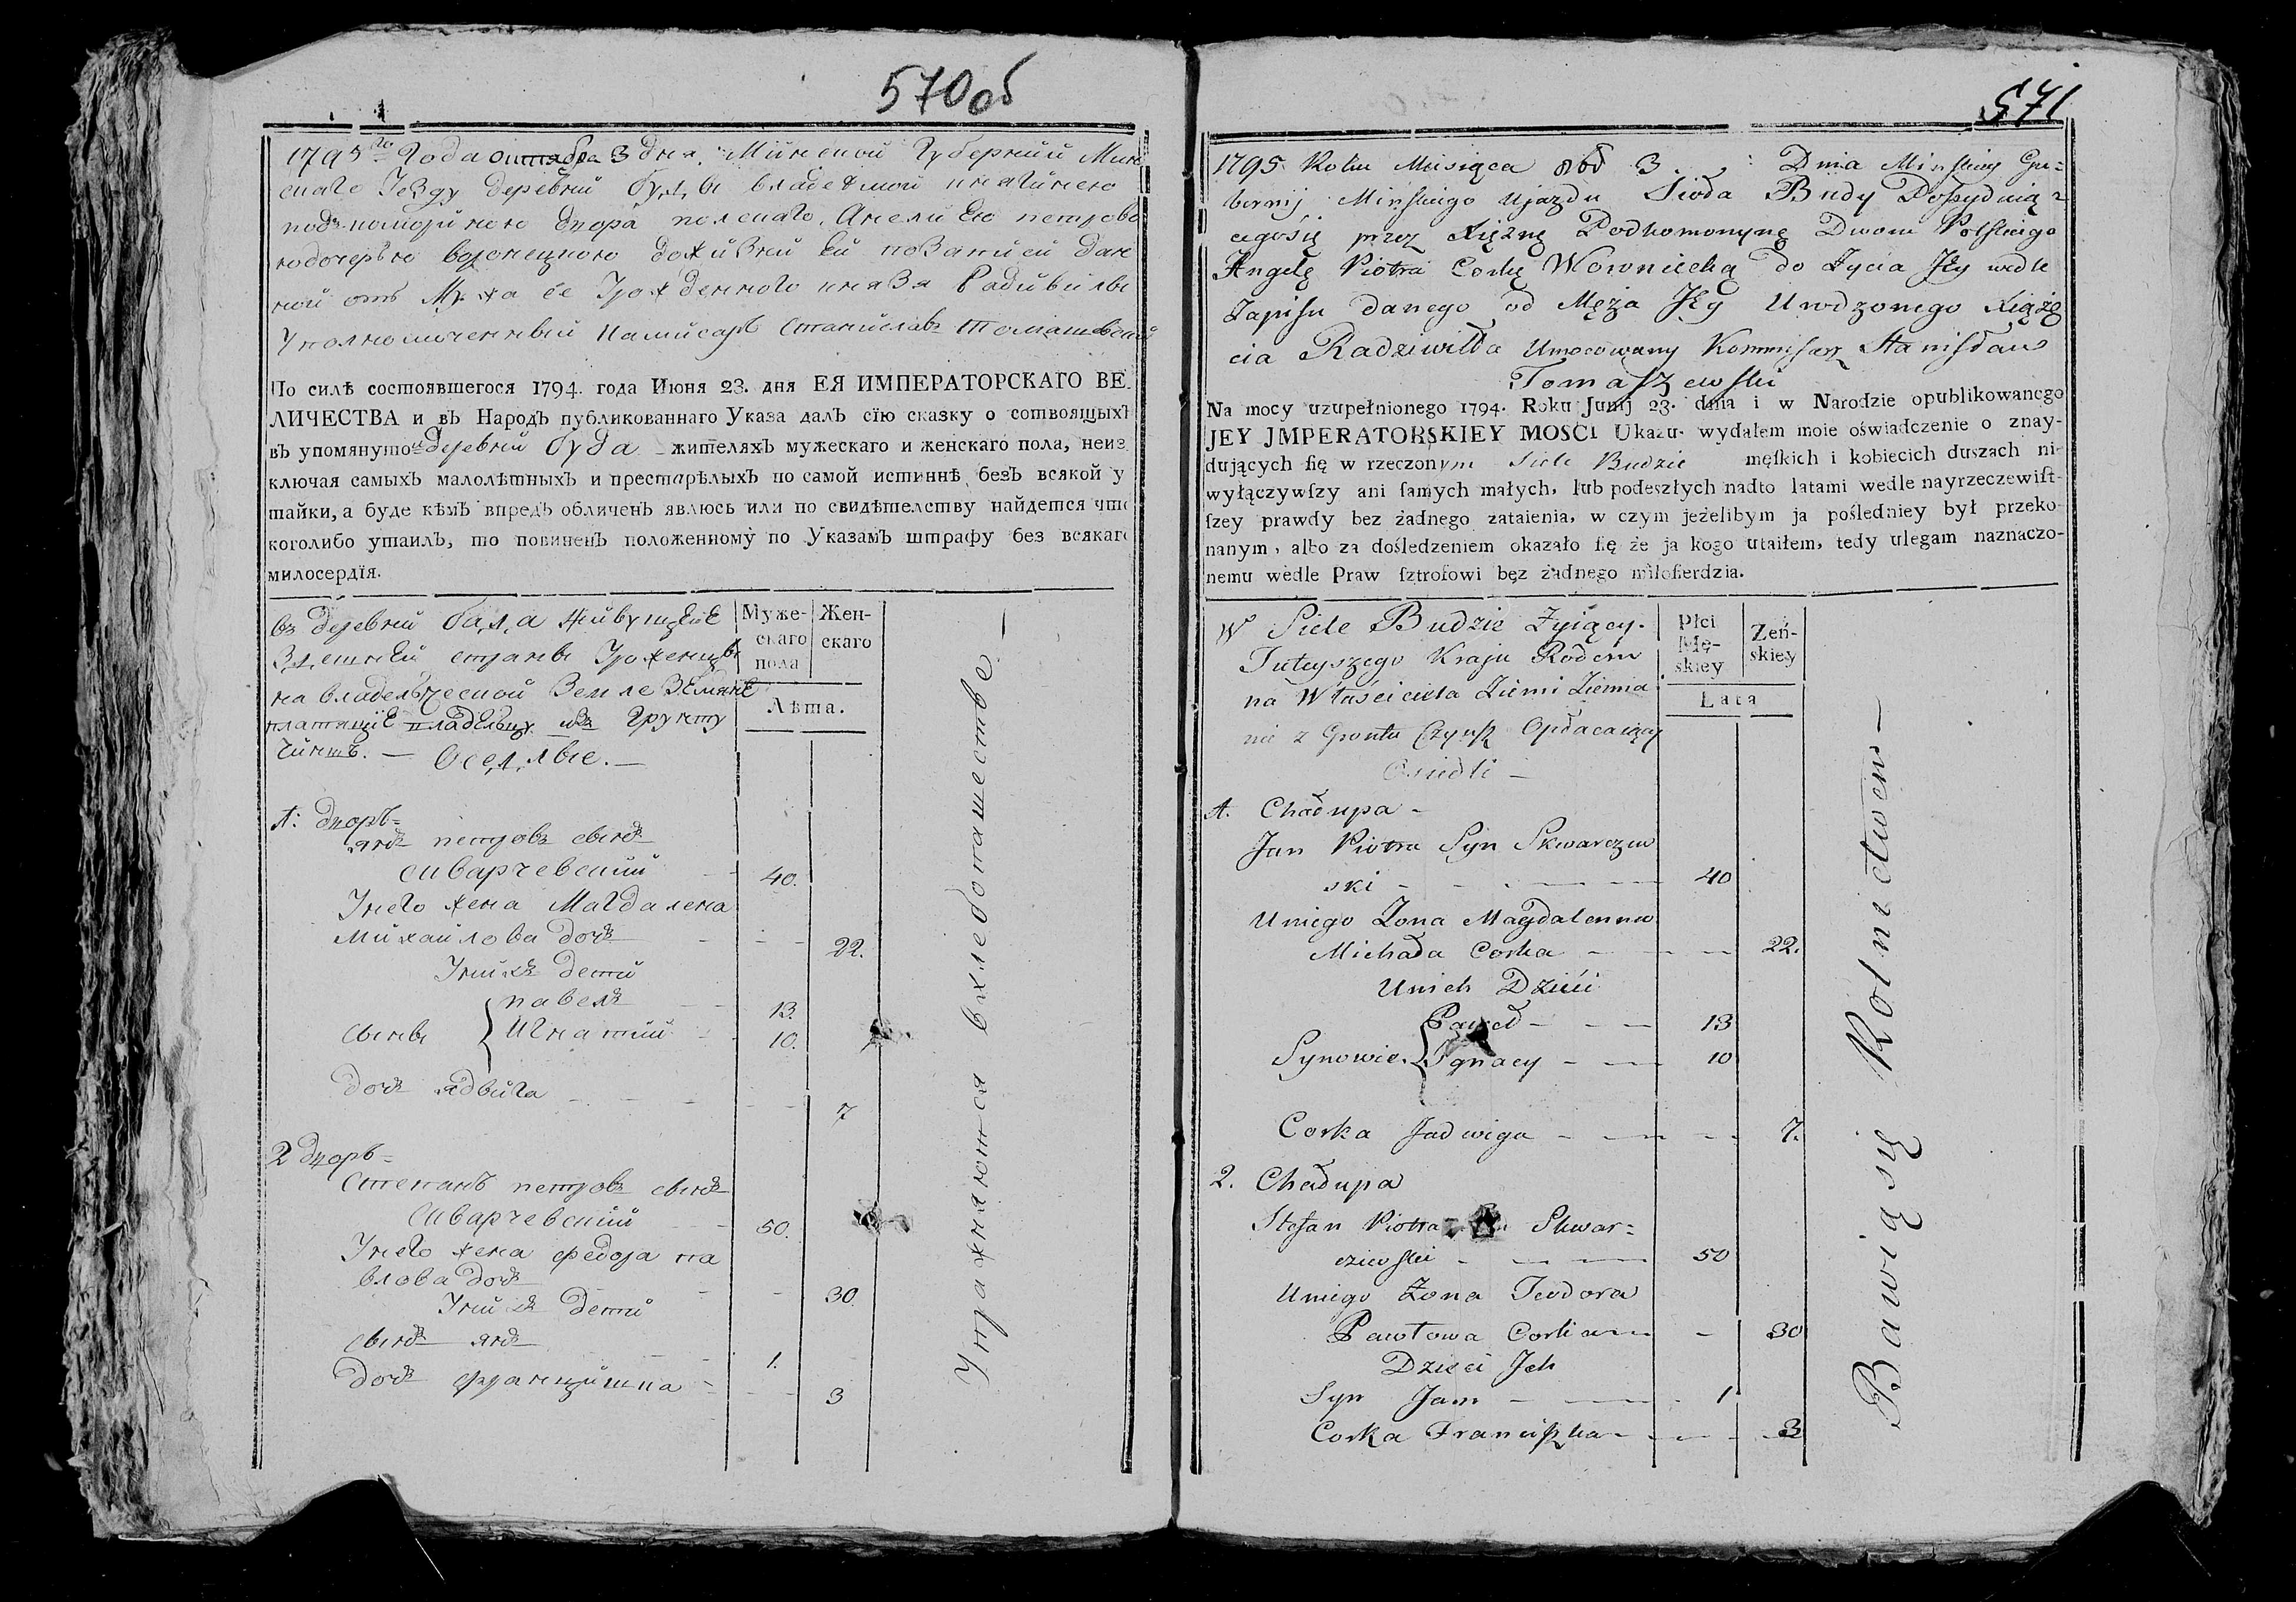 570об
1795го Года октября 3 дня, Минской Губерний Мин
скаго Уезду деревни Буды владемой княгинею
подкомориною двора полскаго, Анелиею петрово
ною отъ Мужа ее Урожденного князя Радивилы
Уполномоченный Комисаръ Станиславъ Томашевский
По силѣ состоявшегося 1794. года Июня 23. дня ЕЯ ИМПЕРАТОРСКАГО ВЕ-
ЛИЧЕСТВА и въ Народъ публикованнаго Указа далъ сїю сказку о сотвоящыхъ
въ упомянутой деревни Буда жителяхъ мужескаго и женскаго пола, неиз
ключая самыхъ малолѣтныхъ и престарѣлыхъ по самой истиннѣ, безъ всякой у
тайки, а буде кѣмъ впредь обличенъ явлюсь или по свидѣтелству найдется что
коголибо утаилъ, то повиненъ положенному по Указамъ штрафу без всякаго
милосердїя.
въ деревни Буда живущие
Здешней страны Уроженцы
на владельческой Земле Земяне
платящие владельцу изъ Грунту
Чиншъ. — Оседлые. —
Муже-
скаго
пола
Жен-
скаго
Лѣта.
1: дворъ
янъ петровъ сынъ
Скварчевский 40.
Унего жена Магдалена
Михайлова дочь 22.
Унихъ дети
сыны { павелъ 13.
Игнатий 10.
дочь ядвига 7
2 дворъ
Степанъ петровъ сынъ
Скварчевский 50.
Унего жена федора па
влова дочь 30.
Унихъ дети
сынъ янъ 1.
дочь францишка 3
Упражняются в хледопашестве —
571
1795 Roku Miesiąca 8br 3 Dnia Minskiey Gu-
bernij Minskiego Ujazdu Sioła Budy Possyduią-
cegosię przez Xiężnę Podkomorzynę Dworu Polskiego
Angelę Piotra Corkę Woroniecką do Życia Jey wedle
Zapisu danego od Męża Jey Urodzonego Xiążę
cia Radziwiłła Umocowany Kommisarz Stanisław
Tomaszewski
Na mocy uzupełnionego 1794. Roku Junij 23. dnia i w Narodzie opublikowanego
JEY JMPERATORSKIEY MOSCI Ukazu wydałem moie oświadczenie o znay-
dujących się w rzeczonym Siele Budzie męskich i kobiecich duszach ni-
wyłączywszy ani samych małych, lub podeszłych nadto latami wedle nayrzeczewist-
szey prawdy bez żadnego zataienia, w czym jeżelibym ja pośledniey był przeko-
nanym, albo za dośledzeniem okazało się że ja kogo utaiłem, tedy ulegam naznaczo-
nemu wedle Praw sztrofowi bez żadnego miłosierdzia.
W Siele Budzie Żyiący.
Tuteyszego Kraju Rodem
na Właściciela Ziemi Ziemia
nie z Gruntu Czynsz Opłacaiący
Osiedli —
Płci
Mę-
skiey
Zeń-
skiey
Lata
1. Chałupa —
Jan Piotra Syn Skwarczew
ski 40
Uniego Żona Magdalenna
Michała Corka 22.
Unich Dzieci
Synowie { Paweł 13
Ignacy 10
Corka Jadwiga 7.
2. Chałupa
Stefan Piotra Skwar-
czewski 50
Uniego Żona Teodora
Pawłowa Corka 30
Dzieci Ich
Syn Jan 1
Corka Franciszka 3
Bawią się Rolnictwem —